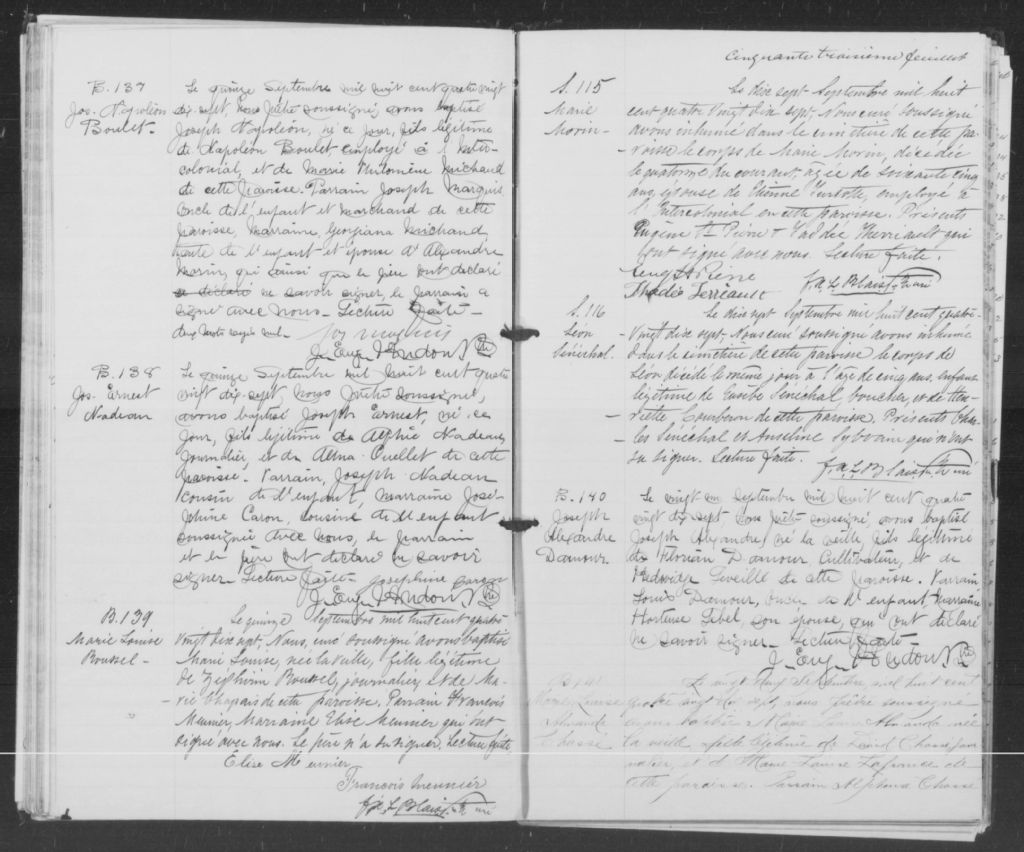 B. 137
Jos. Napoléon
Boulet
Le quinze Septembre mil huit cent quatre vingt
dix-sept, nous Prêtre soussigné, avons baptisé
Joseph Napoléon, né ce jour, fils légitime
de Napoléon Boulet employé à l'Inter-
colonial, et de Marie Philomène Michaud
de cette paroisse. Parrain Joseph Marquis
oncle de l'enfant et marchand de cette
paroisse, Marraine, Georgiana Michaud
tante de l'enfant et épouse d'Alexandre
Morin, qui ainsi que le père ont déclaré
ne savoir signer, le parrain a
signé avec nous. Lecture faite.
Jos Marquis
J. Eug. Pondou Ptre
B. 138
Jos. Ernest
Nadeau
Le quinze Septembre mil huit cent quatre
vingt dix-sept, nous Prêtre soussigné,
avons baptisé Joseph Ernest, né ce
jour, fils légitime de Alphée Nadeau,
Journalier, et de Alma Ouellet de cette
paroisse. Parrain, Joseph Nadeau
cousin de l'enfant, marraine José-
phine Caron, cousine de l'enfant
soussignée avec nous, le parrain
et le père ont déclaré ne savoir
signer. Lecture faite. Josephine Caron
J. Eug. Ptre
B. 139
Marie Louise
Roussel -
Le quinze Septembre mil huit cent quatre
vingt dix sept, Nous, curé soussigné avons baptisé
Marie Louise, née la veille, fille légitime
de Zéphirin Roussel, journalier, et de Ma-
rie Chapais de cette paroisse, Parrain François
Meunier, Marraine Elise Meunier qui ont
signé avec nous. Le père n'a su signer. Lecture faite
Elise Meunier
François Meunier
Jos. L. Blais, Ptre curé
Cinquante troisième feuillet
S. 115
Marie
Morin -
Le dix sept Septembre mil huit
cent quatre vingt dix sept, Nous curé soussigné
avons inhumé dans le cimetière de cette pa-
roisse le corps de Marie Morin, décédée
le quatorze du courant, agée de soixante cinq
ans, épouse de Etienne Turcotte, employé à
l'Intercolonial en cette paroisse. Présents
Eugène St Pierre & Thaddée Therriault qui
ont signé avec nous. Lecture faite.
Eug St Pierre
Thadé Terriault
Jos. L. Blais, Ptre curé
S. 116
Léon
Sénéchal.
Le dix sept Septembre mil huit cent quatre-
vingt dix sept, Nous curé soussigné avons inhumé
dans le cimetière de cette paroisse le corps de
Léon décédé le même jour à l'âge de cinq ans, enfant
légitime de Eusèbe Sénéchal boucher, et de Hen-
riette de cette paroisse. Présents Char-
les Sénéchal et Anselme Sylvain qui n'ont
su signer. Lecture faite.
Jos. L. Blais, Ptre curé
B. 140
Joseph
Alexandre
Damour
Le vingt un Septembre mil huit cent quatre
vingt dix sept, nous prêtre soussigné, avons baptisé
Joseph Alexandre, né la veille, fils légitime
de Florian Damour, Cultivateur, et de
Hedwidge Leveillé de cette paroisse. Parrain
Louis Damour, oncle de l'enfant, Marraine
Hortense Lebel, son épouse, qui ont déclaré
ne savoir signer. Lecture faite
J. Eug. Ptre
B. 141
Marie Louise
Amanda
Chassé
Le vingt Septembre mil huit cent
quatre vingt dix sept, nous Prêtre soussigné
avons baptisé Marie Louise Amanda née
la veille, fille légitime de David Chassé jour
nalier, et de Marie Louise Lafrance de
cette paroisse. Parrain Alphonse Chassé